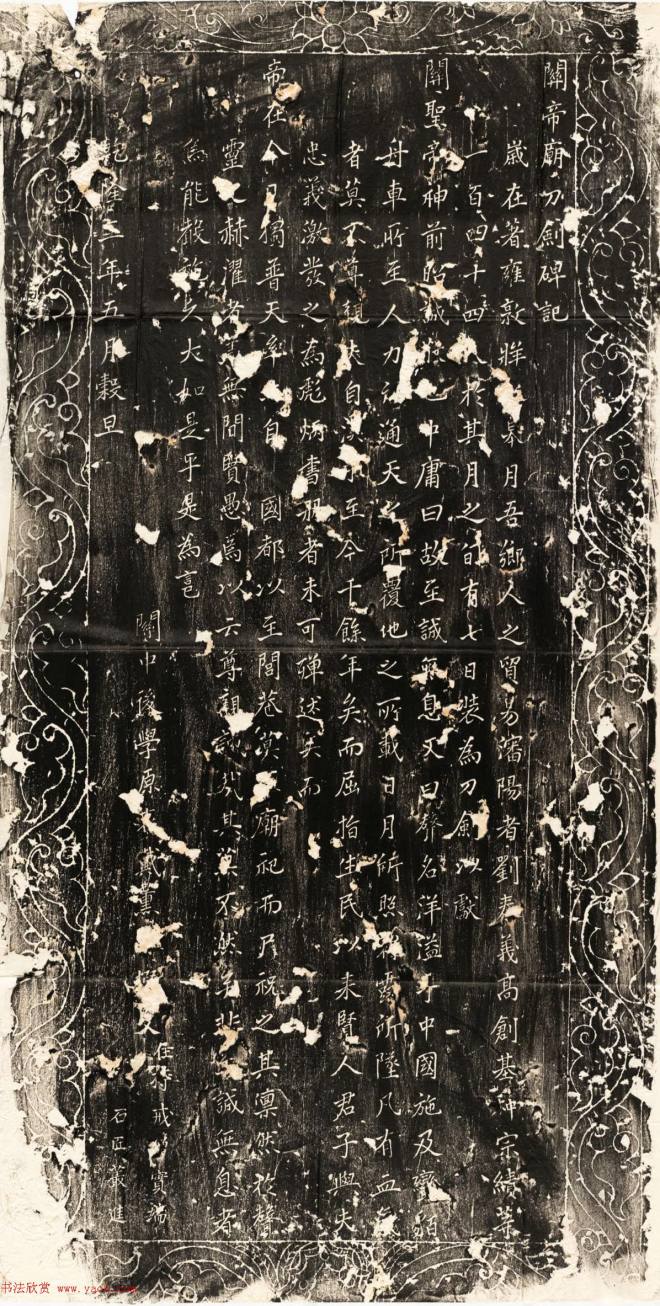 關帝廟刀劍碑記
歲在著雍敦牂皋月吾鄉人之貿易瀋陽者劉春義高創基 宗績等
一百四十四人於其月之旬有七日裝為刀劍以獻
關聖帝神前 誠 也中庸曰故至誠無息又曰聲名洋溢乎中國施及蠻貊
舟車所至人力所通天之所覆地之所載日月所照霜露所墜凡有血氣
者莫不尊親 自漢 至今千餘年矣而屈指生民以來賢人君子與夫
忠義激發之為彪炳書冊者未可殫述矣而
帝在今日獨普天率 自國都以至閭巷 廟祀而尸祝之其凜然於聲
靈之赫濯者 無間賢愚焉以云尊親 其莫不然乎非至誠無息者
焉能教 如是乎是為言
關中後學原 薰
住持戒 實端
石匠 進
乾隆三年五月穀旦
书法欣赏 www.yac